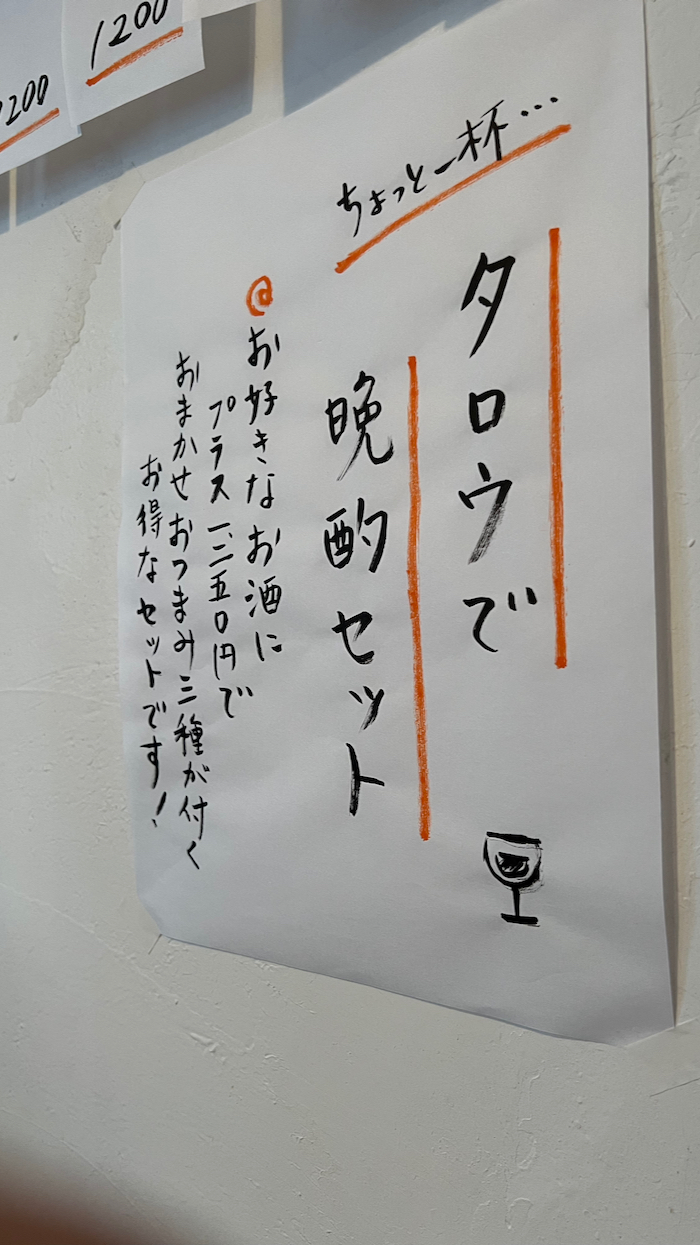 1200
200
ちょっと一杯…
タロウで
晩酌セット
@お好きなお酒に
プラス一、二五〇円で
おまかせおつまみ三種が付く
お得なセットです！